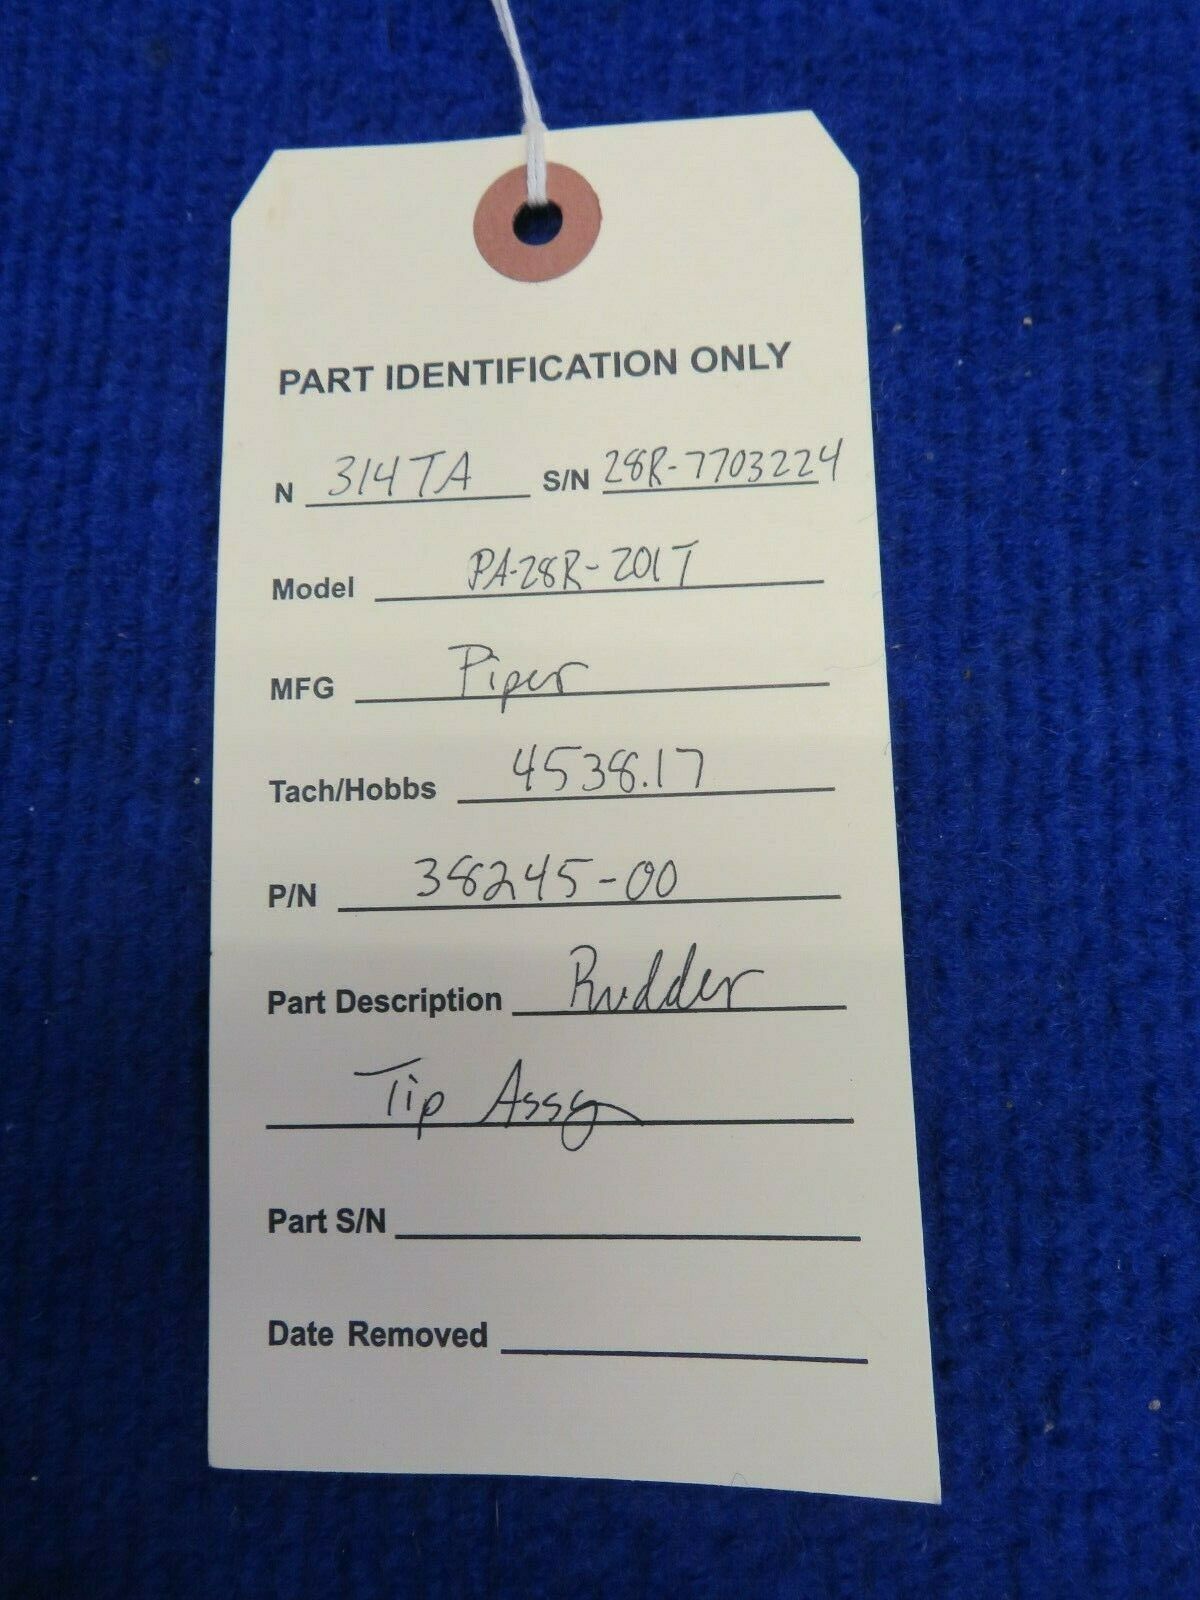 PART IDENTIFICATION ONLY
N 314TA S/N 28R-7703224
Model PA-28R-201T
MFG Piper
Tach/Hobbs 4538.17
P/N 38245-00
Part Description Rudder
Tip Assy
Part S/N
Date Removed